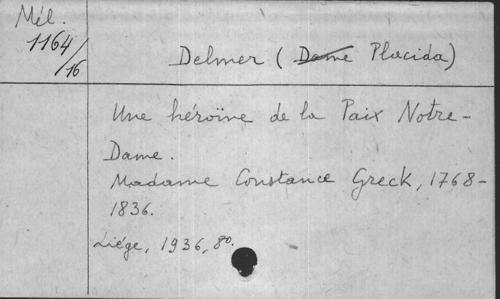 Mél.
1164/16
Delmer (Dame Placida)
Une héroïne de la Paix Notre-
Dame.
Madame Constance Greck, 1768-
1836.
Liége, 1936, 8º.